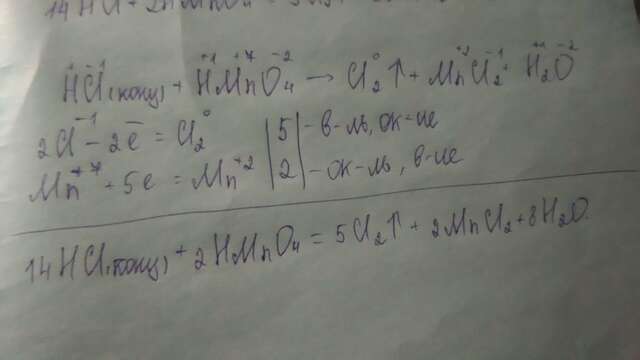 14 HCl + 2HMnO₄ =
H⁺¹Cl⁻¹(конц) + H⁺¹Mn⁺⁷O₄⁻² → Cl₂⁰↑ + Mn⁺²Cl₂⁻¹ H₂⁺¹O⁻²
2Cl⁻¹ - 2e̅ = Cl₂⁰ | 5 | - в-ль, ок-ие
Mn⁺⁷ + 5e = Mn⁺² | 2 | - ок-ль, в-ие
14 HCl(конц) + 2HMnO₄ = 5Cl₂↑ + 2MnCl₂ + 8H₂O.